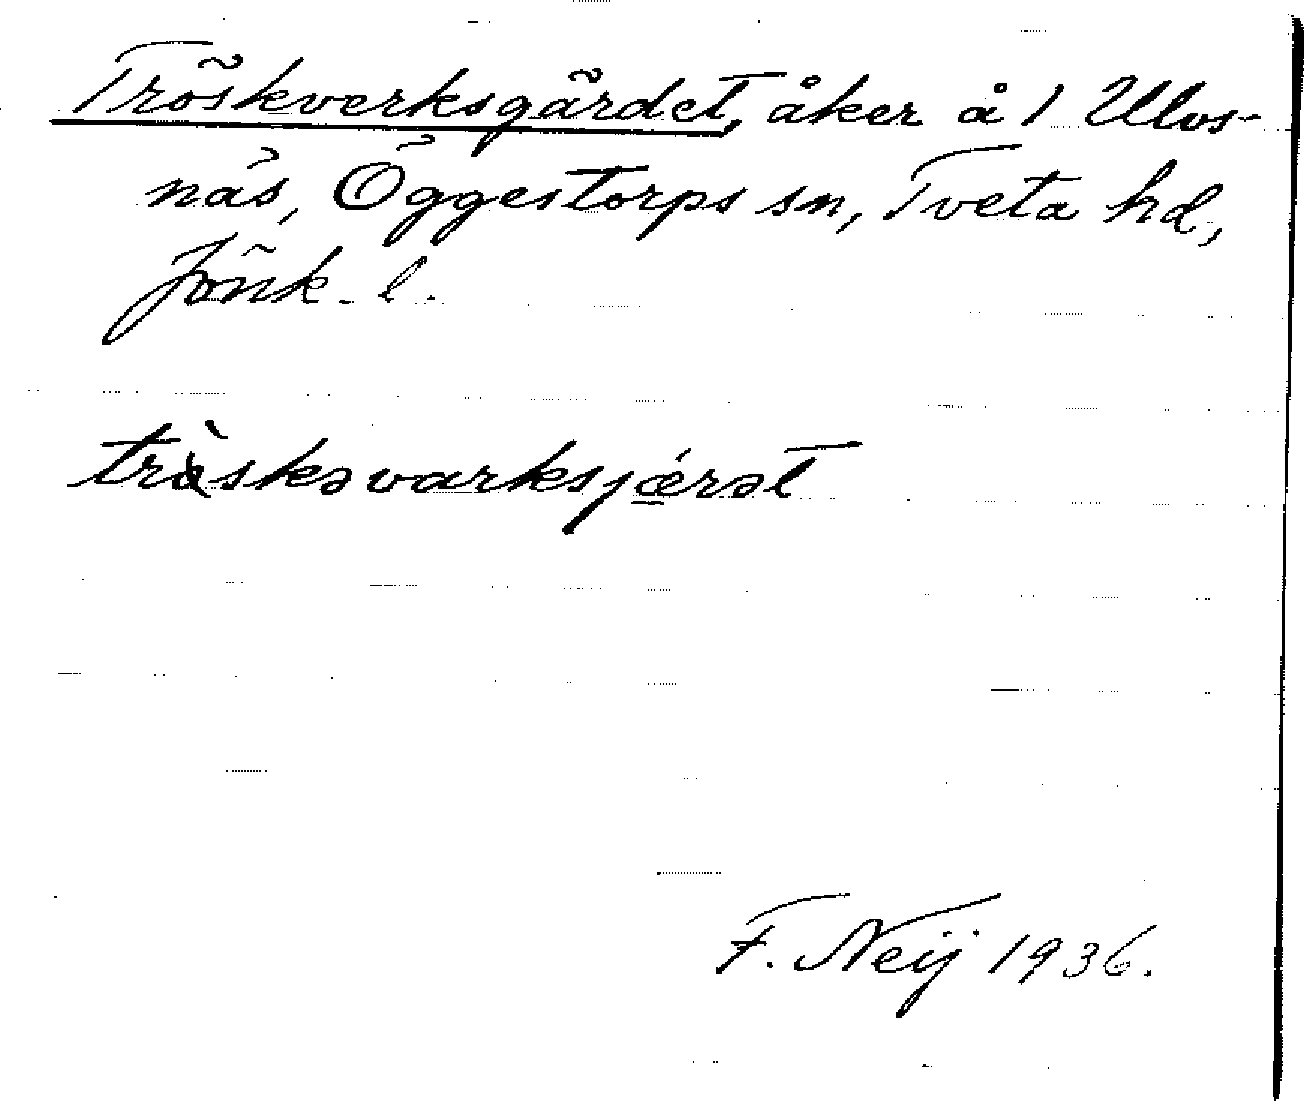 Tröskverksgärdet, åker å 1 Ulvs-
näs, Öggestorps sn, Tveta hd,
Jönk. l.
tràskəvarksjǽrət
F. Neij 1936.